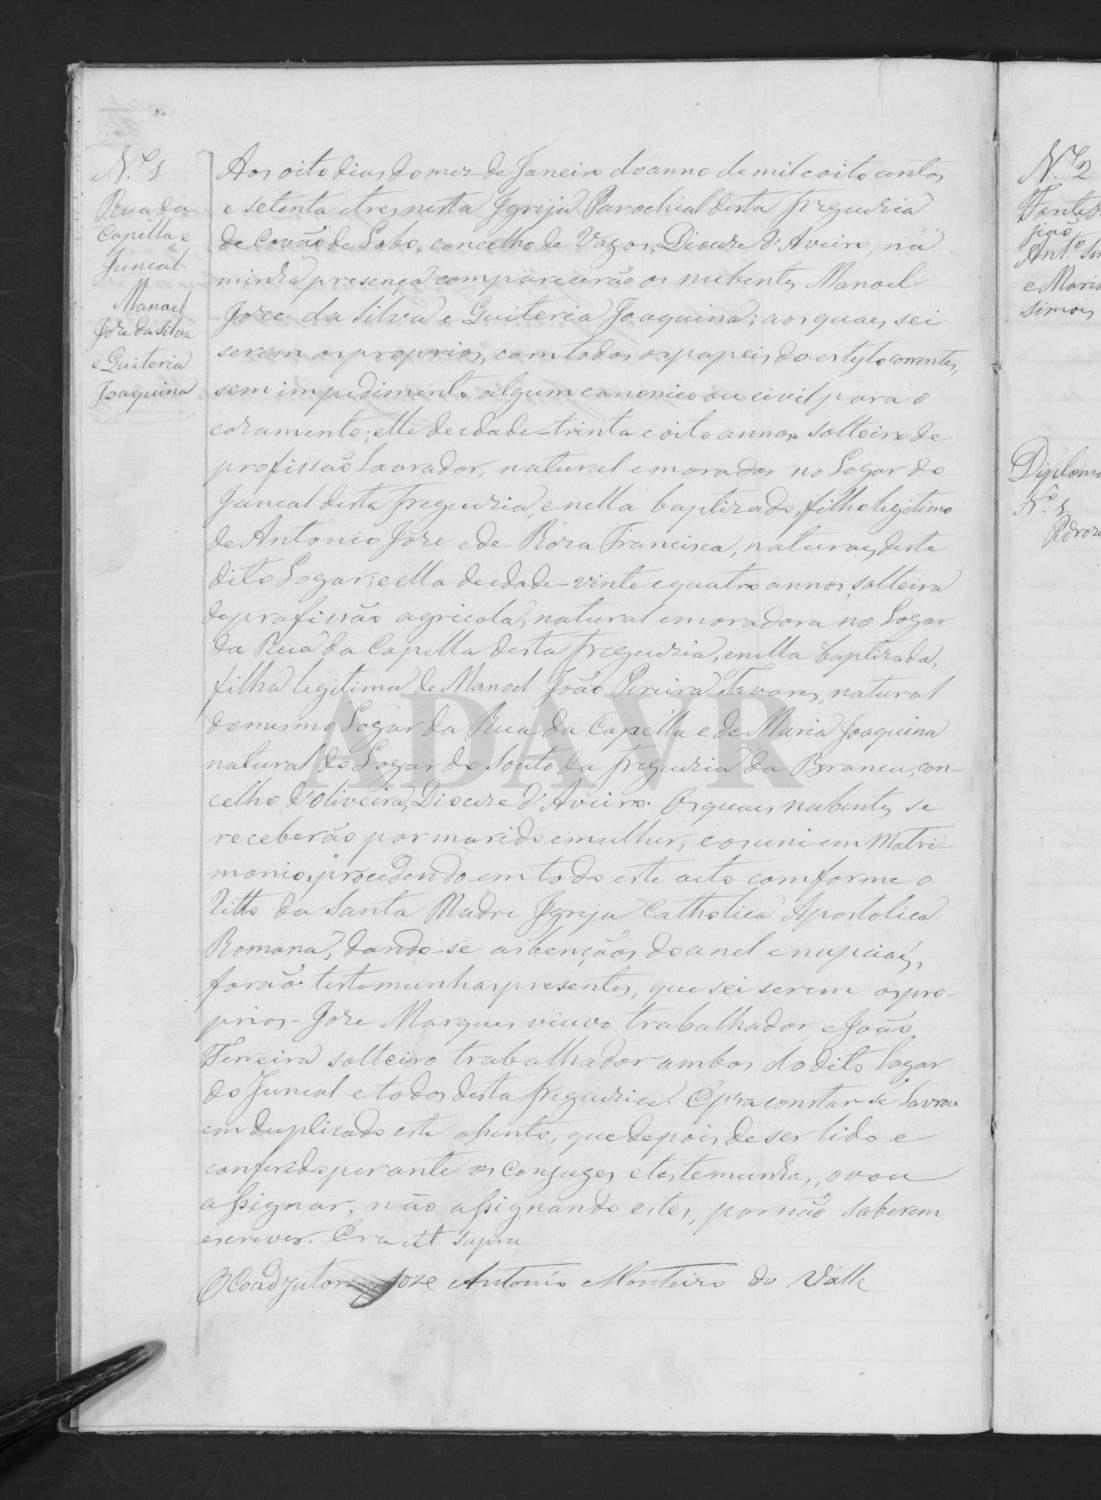 N.º 1
Rua da
Capella e
Juncal
Manoel
Joze da Silva
e Guiteria
Joaquina
Aos oito dias do mez de Janeiro do anno de mil e oito centos
e setenta e tres nesta Igreja Parochial desta freguezia
de Covão de Lobo, concelho de Vagos, Diocese d'Aveiro, na
minha presença comparecerão os nubentes Manoel
Joze da Silva e Guiteria Joaquina; aos quaes sei
serem os proprios, com todos os papeis do estylo correntes,
sem impedimento algum canonico ou civil para o
cazamento; elle de edade - trinta e oito annos solteiro de
profissão Lavrador, natural e morador no Logar do
Juncal desta freguezia, e nella baptizado, filho legitimo
de Antonio Joze e de Roza Francisca, naturaes deste
dito Logar; e ella de edade - vinte e quatro annos, solteira
de profissão agricola, natural e moradora no Logar
da Rua da Capella desta freguezia, e nella baptizada,
filha legitima de Manoel João Pereira Tavares, natural
do mesmo Logar da Rua da Capella e de Maria Joaquina
natural do Logar do Souto da freguezia da Branca, con-
celho d'Oliveira, Diocese d'Aveiro. Os quaes nubentes se
receberão por marido e mulher, e os uni em Matri-
monio, procedendo em todo este acto comforme o
Ritto da Santa Madre Igreja Catholica Apostolica
Romana, dando-se as bençãos do anel e nupciaes,
forão testemunhas presentes, que sei serem os pro-
prios - Joze Marques viuvo trabalhador e João
Ferreira solteiro trabalhador ambos do dito Logar
do Juncal e todos desta freguezia. E p.ª constar se lavrou
em duplicado este assento, que depois de ser lido e
conferido perante os conjuges e testemunhas, o vou
assignar, não assignando estes, por não saberem
escrever. Era ut supra
O Coadjutor Joze Antonio Monteiro do Valle
ADAVR
N.º 2
Ant.º
e Maria
Simões
Diploma
N.º 1